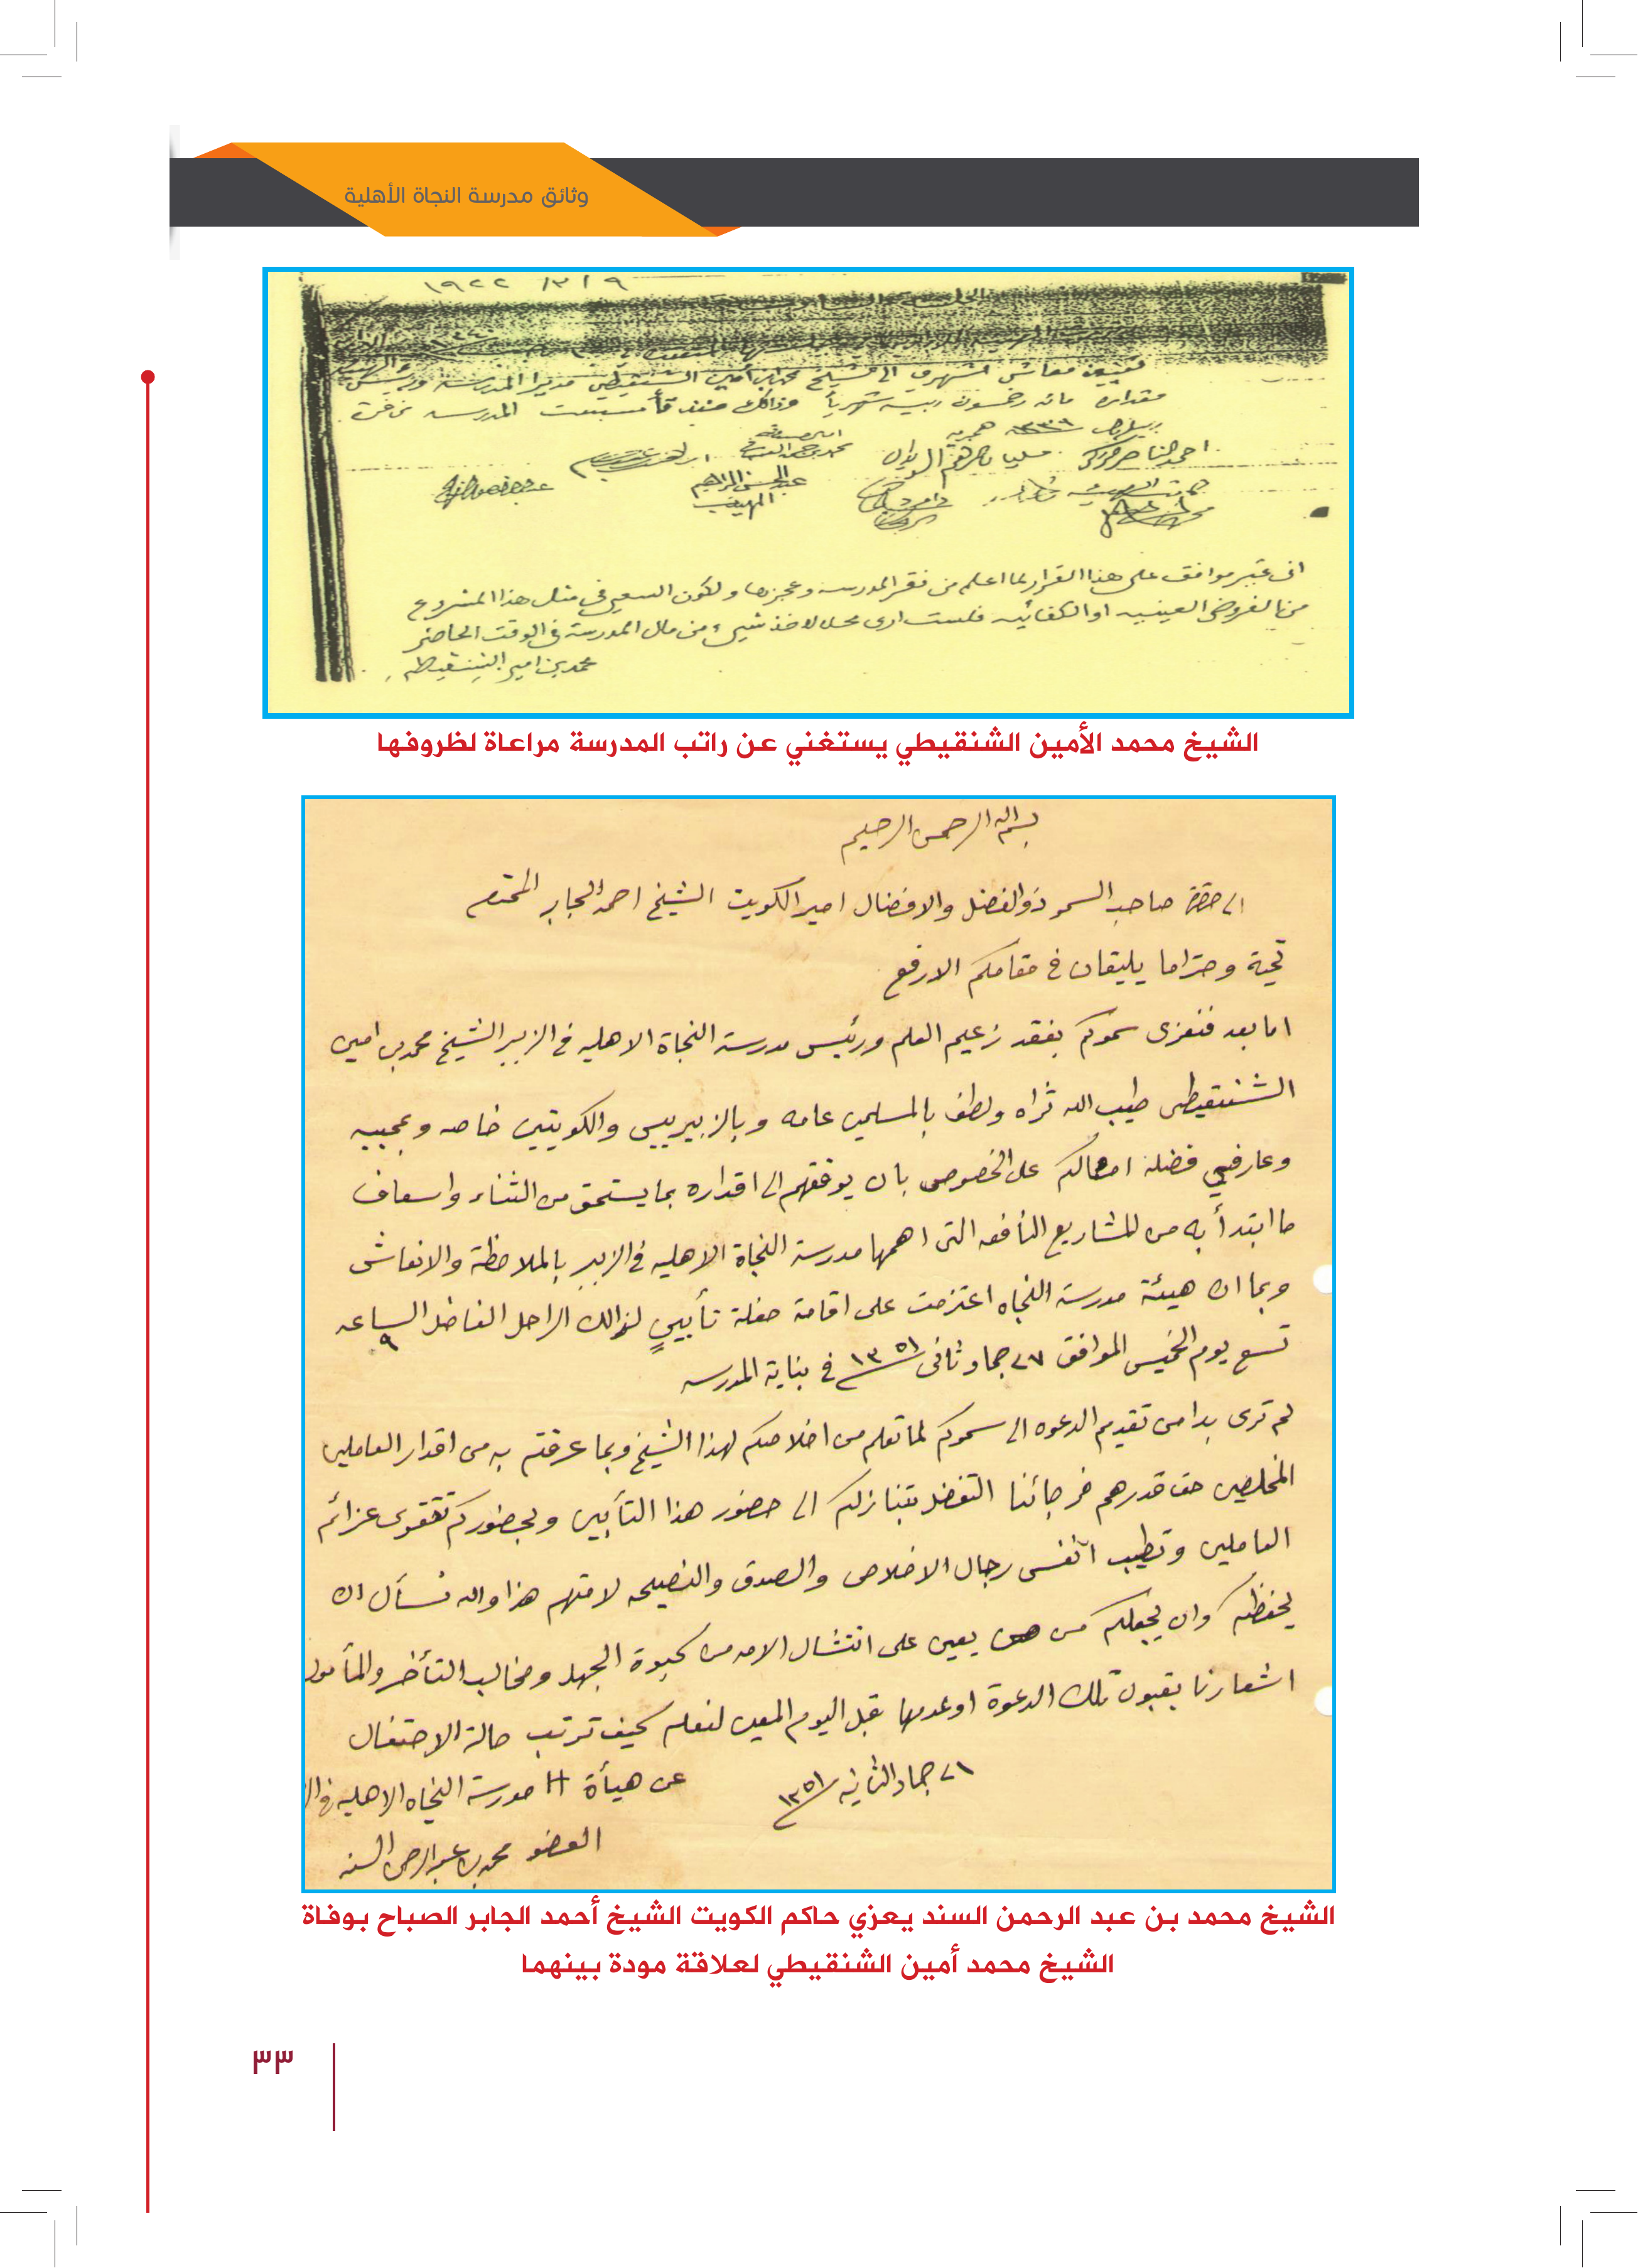 وثائق مدرسة النجاة الأهلية
١٩٢٢ /٣/ ٩
تعيين معاش شهري الى الشيخ محمد بن أمين الشنقيطي مديرا المدرسة
مقداره مائه وخمسون ربية شهرياً وذالك منذ تأسست المدرسه
١٣٣٩ هجرية
محمد بن حمد العسافي
عبدالمحسن ابراهيم
المهيدب
اني غير موافق على هذا القرار لما اعلم من فقر المدرسه وعجزها ولكون السعي في مثل هذا المشروع
من الفروض العينيه او الكفائيه فلست ارى محلا لاخذ شيء من مال المدرسة في الوقت الحاضر
محمد بن امين الشنقيطي
الشيخ محمد الأمين الشنقيطي يستغني عن راتب المدرسة مراعاة لظروفها
بسم الله الرحمن الرحيم
الى حضرة صاحب السمو ذو الفضل والافضال امير الكويت الشيخ احمد الجابر المحترم
تحية وحتراما يليقان في مقامكم الارفع
اما بعد فنعزى سموكم بفقد زعيم العلم ورئيس مدرسة النجاة الاهليه في الزبير الشيخ محمد بن امين
الشنقيطى طيب الله ثراه ولطف بالمسلمين عامه وبالزبيريين والكويتين خاصه وبمحبيه
وعارفي فضله امثالكم على الخصوص بان يوفقهم الى اقداره بما يستحق من الثناء واسعاف
ما ابتدأ به من المشاريع النافعه التى اهمها مدرسة النجاة الاهليه في الزبير بالملاحظة والانعاش
وبما ان هيئة مدرسة النجاه اعتزمت على اقامة حفلة تأبينٍ لذالك الراحل الفاضل الساعه ٩
تسع يوم الخميس الموافق ٢٧ جماد ثانى ١٣٥١ في بناية المدرسه
لم ترى بدا من تقديم الدعوه الى سموكم لما تعلم من اخلاصكم لهذا الشيخ وبما عرفتم به من اقدار العاملين
المخلصين حق قدرهم فرجائنا التفضل بتنازلكم الى حضور هذا التأبين وبحضوركم تتقوى عزائم
العاملين وتطيب انفس رجال الاخلاص والصدق والنصيحه لامتهم هذا والله نسأل ان
يحفظكم وان يجعلكم من يعين على انتشال الامه من كبوة الجهل ومخالب التأخر والمأمول
اشعارنا بقبول تلك الدعوة او عدمها قبل اليوم المعين لنعلم كيف ترتب حالة الاحتفال
٢١ جماد الثانيه ١٣٥١
عن هيأة مدرسة النجاه الاهليه في
العضو محمد بن عبد الرحمن السند
الشيخ محمد بن عبد الرحمن السند يعزي حاكم الكويت الشيخ أحمد الجابر الصباح بوفاة
الشيخ محمد أمين الشنقيطي لعلاقة مودة بينهما
٣٣